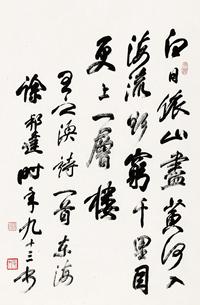 白日依山盡黃河入
海流欲窮千里目
更上一層樓
王之渙詩一首東海
徐邦達時年九十三